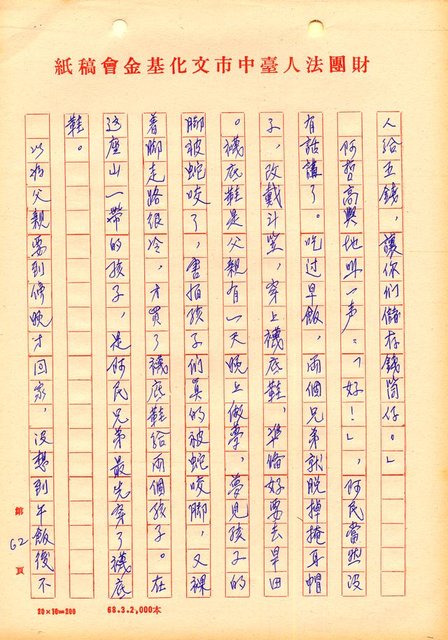 財團法人臺中市文化基金會稿紙
人給五錢，讓你們儲存錢筒仔。」
阿哲高興地叫一声：「好！」，阿民當然沒
有話講了。吃过早飯，兩個兄弟就脫掉掩耳帽
子，改戴斗笠，穿上襪底鞋，準俻好要去旱田
。襪底鞋是父親有一天晚上做夢，夢見孩子的
脚被蛇咬了，害怕孩子们真的被蛇咬脚，又裸
着脚走路很冷，才買了襪底鞋給兩個孩子。在
这座山一帶的孩子，是阿民兄弟最先穿了襪底
鞋。
以為父親要到傍晚才回家，沒想到午飯後不
第 62 頁
20×10=200
68.3.2,000本